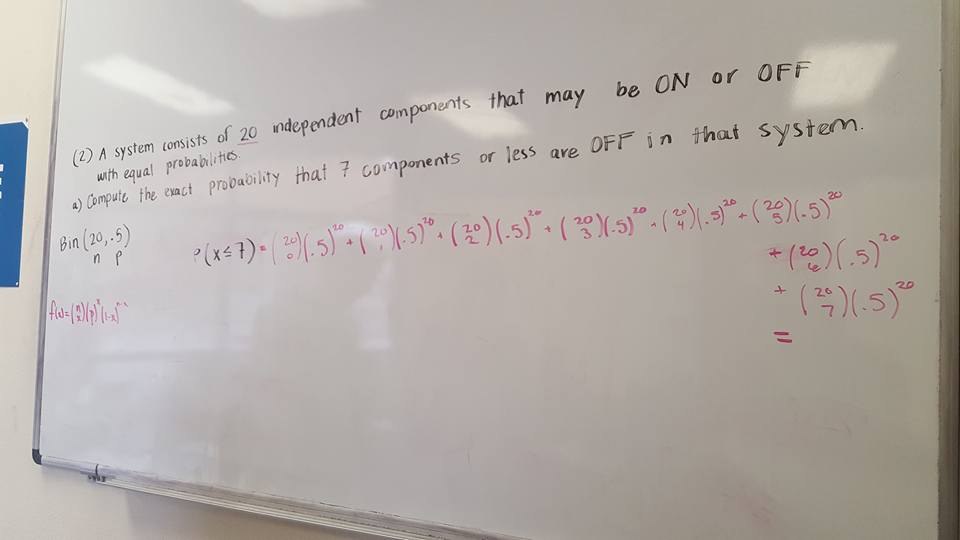 (2) A system consists of 20 independent components that may be ON or OFF
with equal probabilities.
a) Compute the exact probability that 7 components or less are OFF in that system.
Bin(20, .5)
n p
P(x≤7) = (20 0)(.5)^20 + (20 1)(.5)^20 + (20 2)(.5)^20 + (20 3)(.5)^20 + (20 4)(.5)^20 + (20 5)(.5)^20
+ (20 6)(.5)^20
+ (20 7)(.5)^20
=
f(x) = (n x)(p)^x (1-x)^n-x